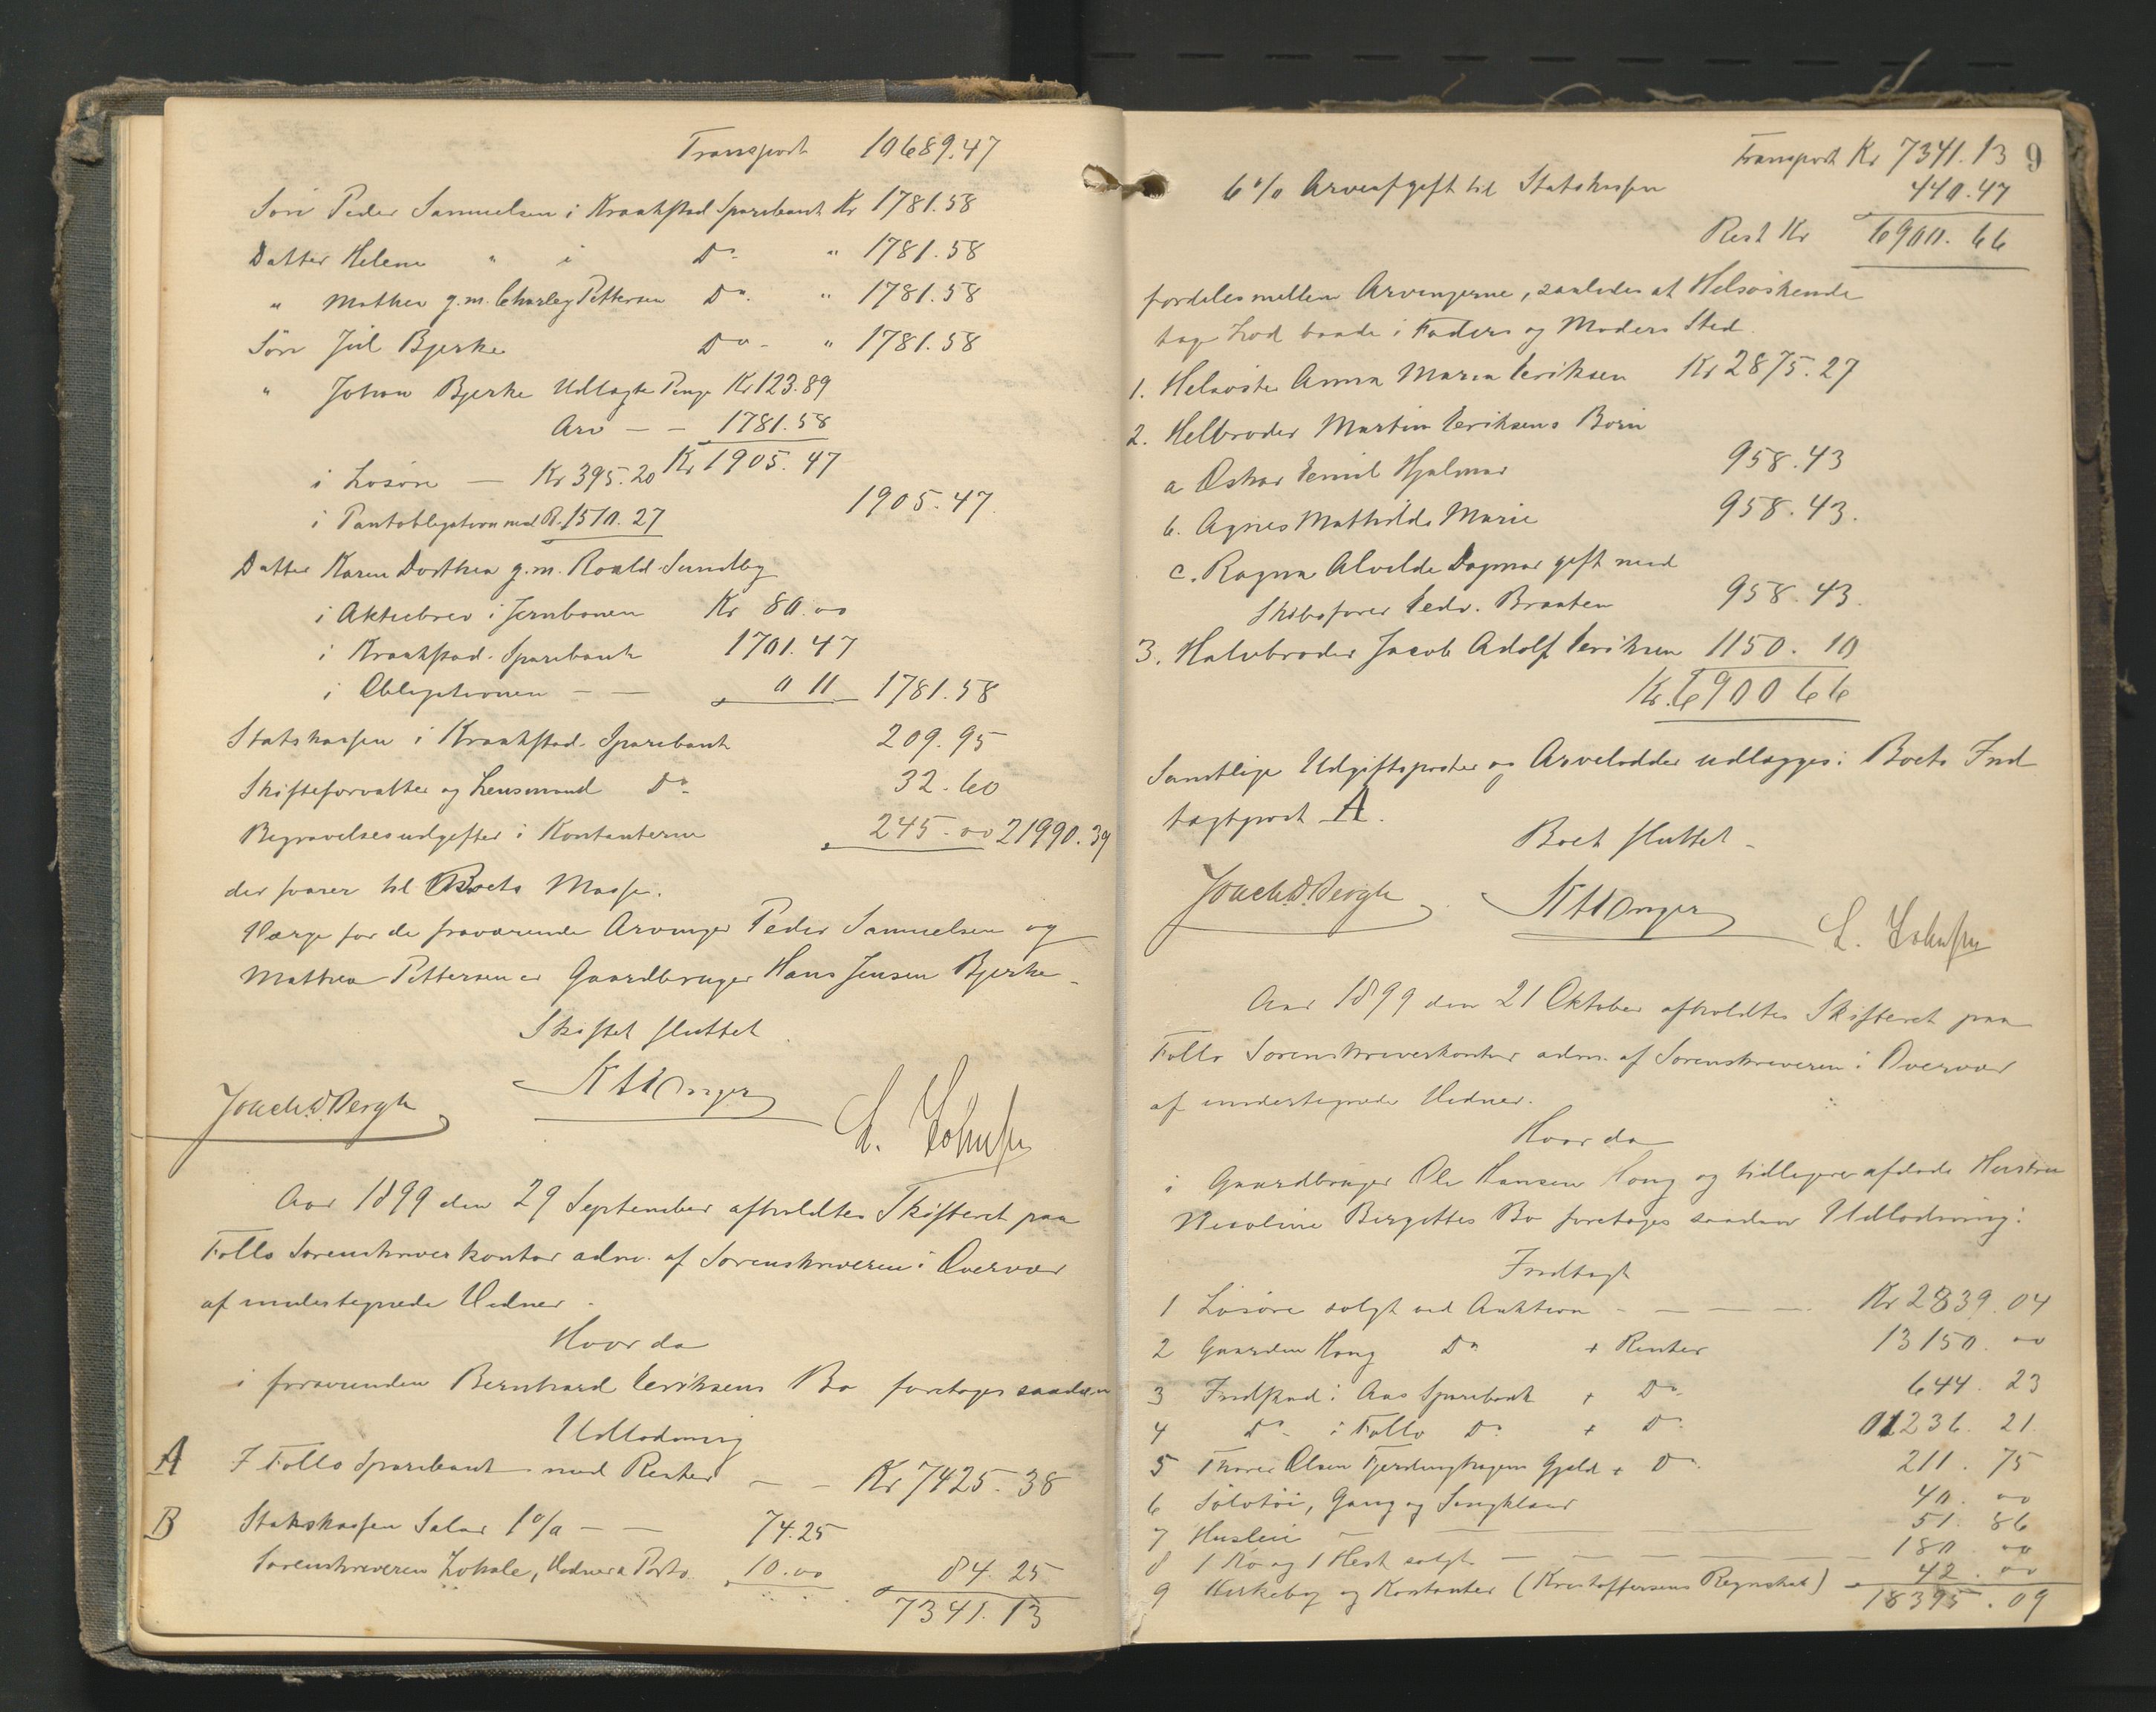 Transport 10689.47
Søn Peder Samuelsen i Kraakstad Sparebank Kr 1781.58
Datter Helene " i Do " 1781.58
" Mathea g.m. Charley Pettersen Do. " 1781.58
Søn Jul Bjerke Do - " 1781.58
" Johan Bjerke Udlagte Penge Kr 123.89
Arv - - 1781.58
Kr 1905.47
i Løsøre — Kr 395.20
i Pantobligation med R. 1510.27 1905.47
Datter Karen Dorthea g.m. Roald Sundby
i Aktiebrev i Jernbanen Kr 80.00
i Kraakstad Sparebank 1701.47
i Obligationen - — 0 11 1781.58
Statskassen i Kraakstad Sparebank 209.95
Skifteforvalter og Lensmand Do 32.60
Begravelsesudgifter i Kontanterne 245.00 21990.39
der svarer til Boets Masse.
Værge for de fraværende Arvinger Peder Samuelsen og
Mathea Pettersen er Gaardbruger Hans Jensen Bjerke -
Skiftet sluttet.
Joach. D. Bergh K H Onger L. Johnsen
Aar 1899 den 29 September afholdtes Skifteret paa
Follo Sorenskriverkontor adm. af Sorenskriveren i Overvær
af undertegnede Vidner.
Hvor da
i forsvunden Bernhard Eriksens Bo foretoges saadan
Udlodning
A I Follo Sparebank med Renter — - Kr 7425.38
B Statskassen Salær 1 o/o - — 74.25
Sorenskriveren Lokale, Vidner & Porto 10.00 84.25
7341.13
9
Transport Kr 7341.13
6 o/o Arveafgift til Statskassen 440.47
Rest Kr 6900.66
fordeles mellem Arvingerne, saaledes at Helsøskende
tage Lod baade i Faders og Moders Sted.
1. Helsøster Anna Maria Eriksen Kr 2875.27
2. Helbroder Martin Eriksens Børn
a Oskar Emil Hjalmar 958.43
b. Agnes Mathilde Marie 958.43.
c. Ragna Alvilde Dagmar gift med
Skibsfører Edv. Braaten 958.43.
3. Halvbroder Jacob Adolf Eriksen 1150.10
Kr. 6900 66
Samtlige Udgiftsposter og Arvelodder udlægges i Boets Ind
tægtspost A.
Boet sluttet -
Joach. D. Bergh K H Onger L. Johnsen
Aar 1899 den 21 Oktober afholdtes Skifteret paa
Follo Sorenskriverkontor adm. af Sorenskriveren i Overvær
af undertegnede Vidner.
Hvor da
i Gaardbruger Ole Hansen Haug og tidligere afdøde Hustru
Nicoline Birgittes Bo foretoges saadan Udlodning:
Indtægt
1 Løsøre solgt ved Auktion - — — — Kr 2839.04
2 Gaarden Haug Do + Renter 13150.00
3 Indskud i Aas Sparebank + Do 644.23
4 Do i Follo Do + Do 1236.21.
5 Thorer Olsen Gjæld + Do 211.75
6 Sølvtøi, Gang og Sengklær 40.00
7 Husleie — 51.86
8 1 Ko og 1 Hest solgt — — — 180.00
9 Kirkebog og Kontanter (Kristoffersens Regnskab) 42.00
18395.09